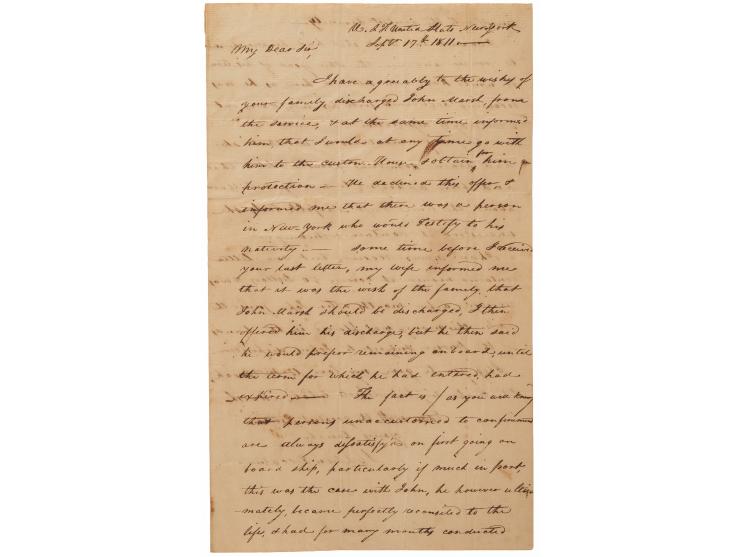 U. S. F. United States New York
Septr. 17th 1811
My Dear Sir,
I have agreeably to the wishes of
your family, discharged John Marsh, from
the service, & at the same time informed
him, that I would at any time go with
him to the Custom House, & obtain him a
protection — He declined this offer, &
informed me that there was a person
in New-York who would testify to his
nativity. — Some time before I received
your last letter, my wife informed me
that it was the wish of the family that
John Marsh should be discharged, I then
offered him his discharge, but he then said
he would prefer remaining on board, until
the term for which he had entered, had
expired — The fact is / as you well know
that persons unaccustomed to confinement
are always dissatisfy'd on first going on
board ship, particularly if much in port,
this was the case with John, he however ulti
-mately, became perfectly reconciled to the
life, & had for many months conducted